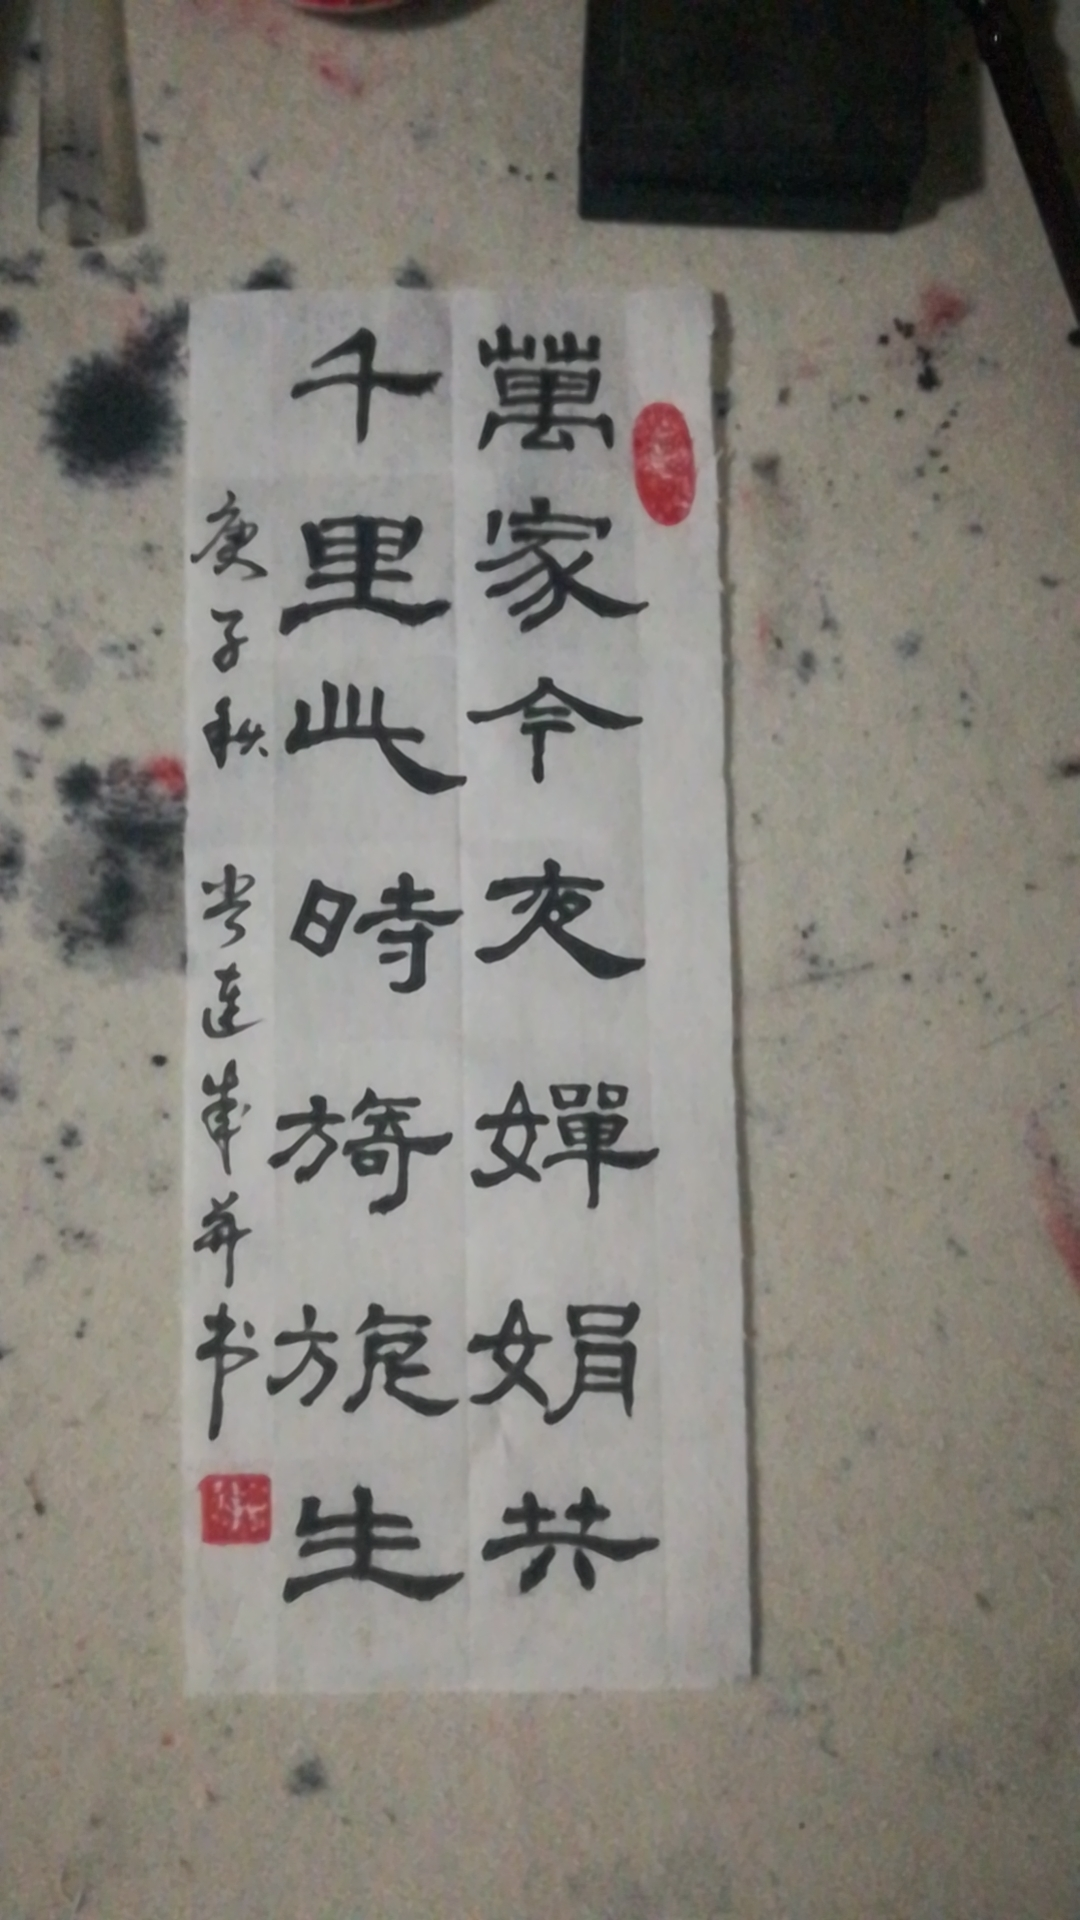 萬家今夜嬋娟共
千里此時旖旎生
庚子秋 常連成并书